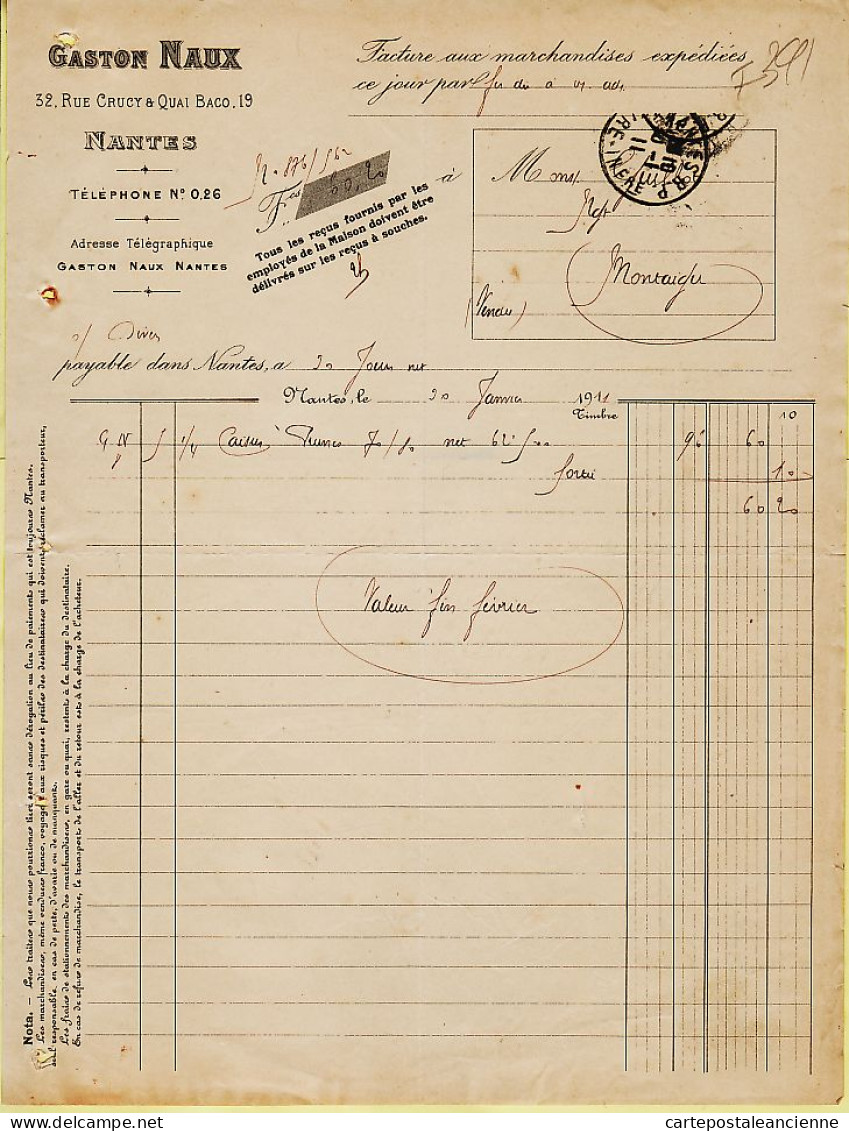 GASTON NAUX
32, RUE CRUCY & QUAI BACO, 19
NANTES
TÉLÉPHONE Nº 0,26
Adresse Télégraphique
GASTON NAUX NANTES
Facture aux marchandises expédiées
ce jour par
Fcs 60,20
Tous les reçus fournis par les
employés de la Maison doivent être
délivrés sur les reçus à souches.
à
Mons
Montaigu
(Vendu)
payable dans Nantes, a 30 Jours net
Nantes, le 20 Janvier 1911
Timbre 10
G N 5 1/4 Caisses Prunes 70/80 net 96 60
10
60 20
Valeur fin février
Nota. — Les traites que nous pourrions tirer seront sans dérogation au lieu de paiements qui est toujours Nantes.
Les marchandises, même vendues franco, voyagent aux risques et périls des destinataires qui doivent réclamer au transporteur,
seul responsable, en cas de perte, d'avarie ou de manquants.
Les frais de stationnements des marchandises, en gare ou quai, restent à la charge du destinataire.
En cas de refus de marchandise, le transport de l'aller et du retour est à la charge de l'acheteur.
cartepostaleancienne